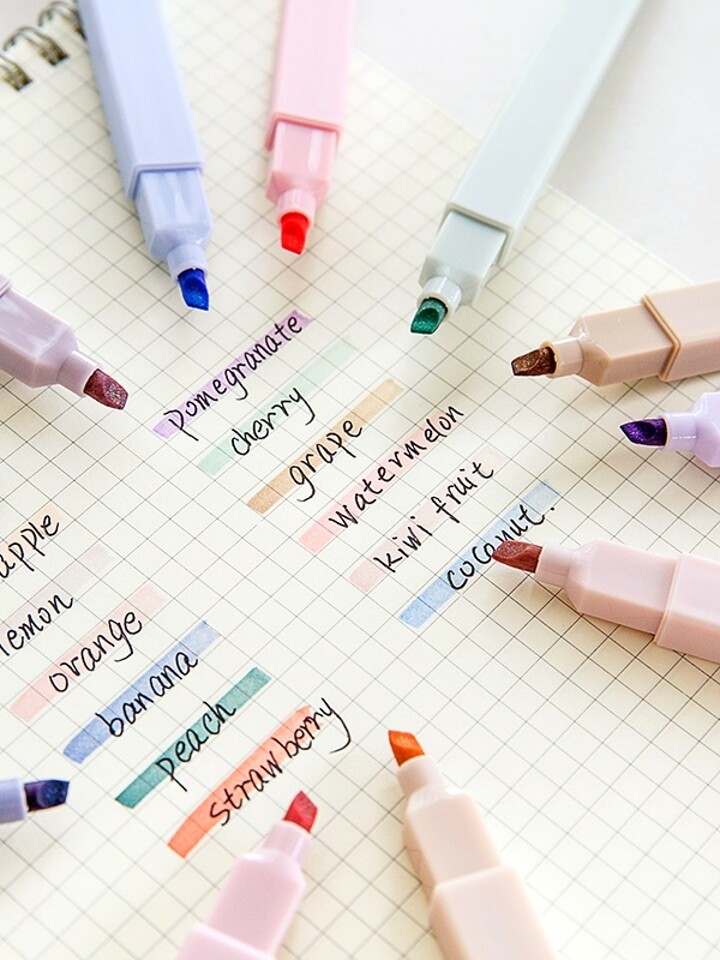 pomegranate
cherry
grape
watermelon
kiwi fruit
coconut.
apple
lemon
orange
banana
peach
strawberry